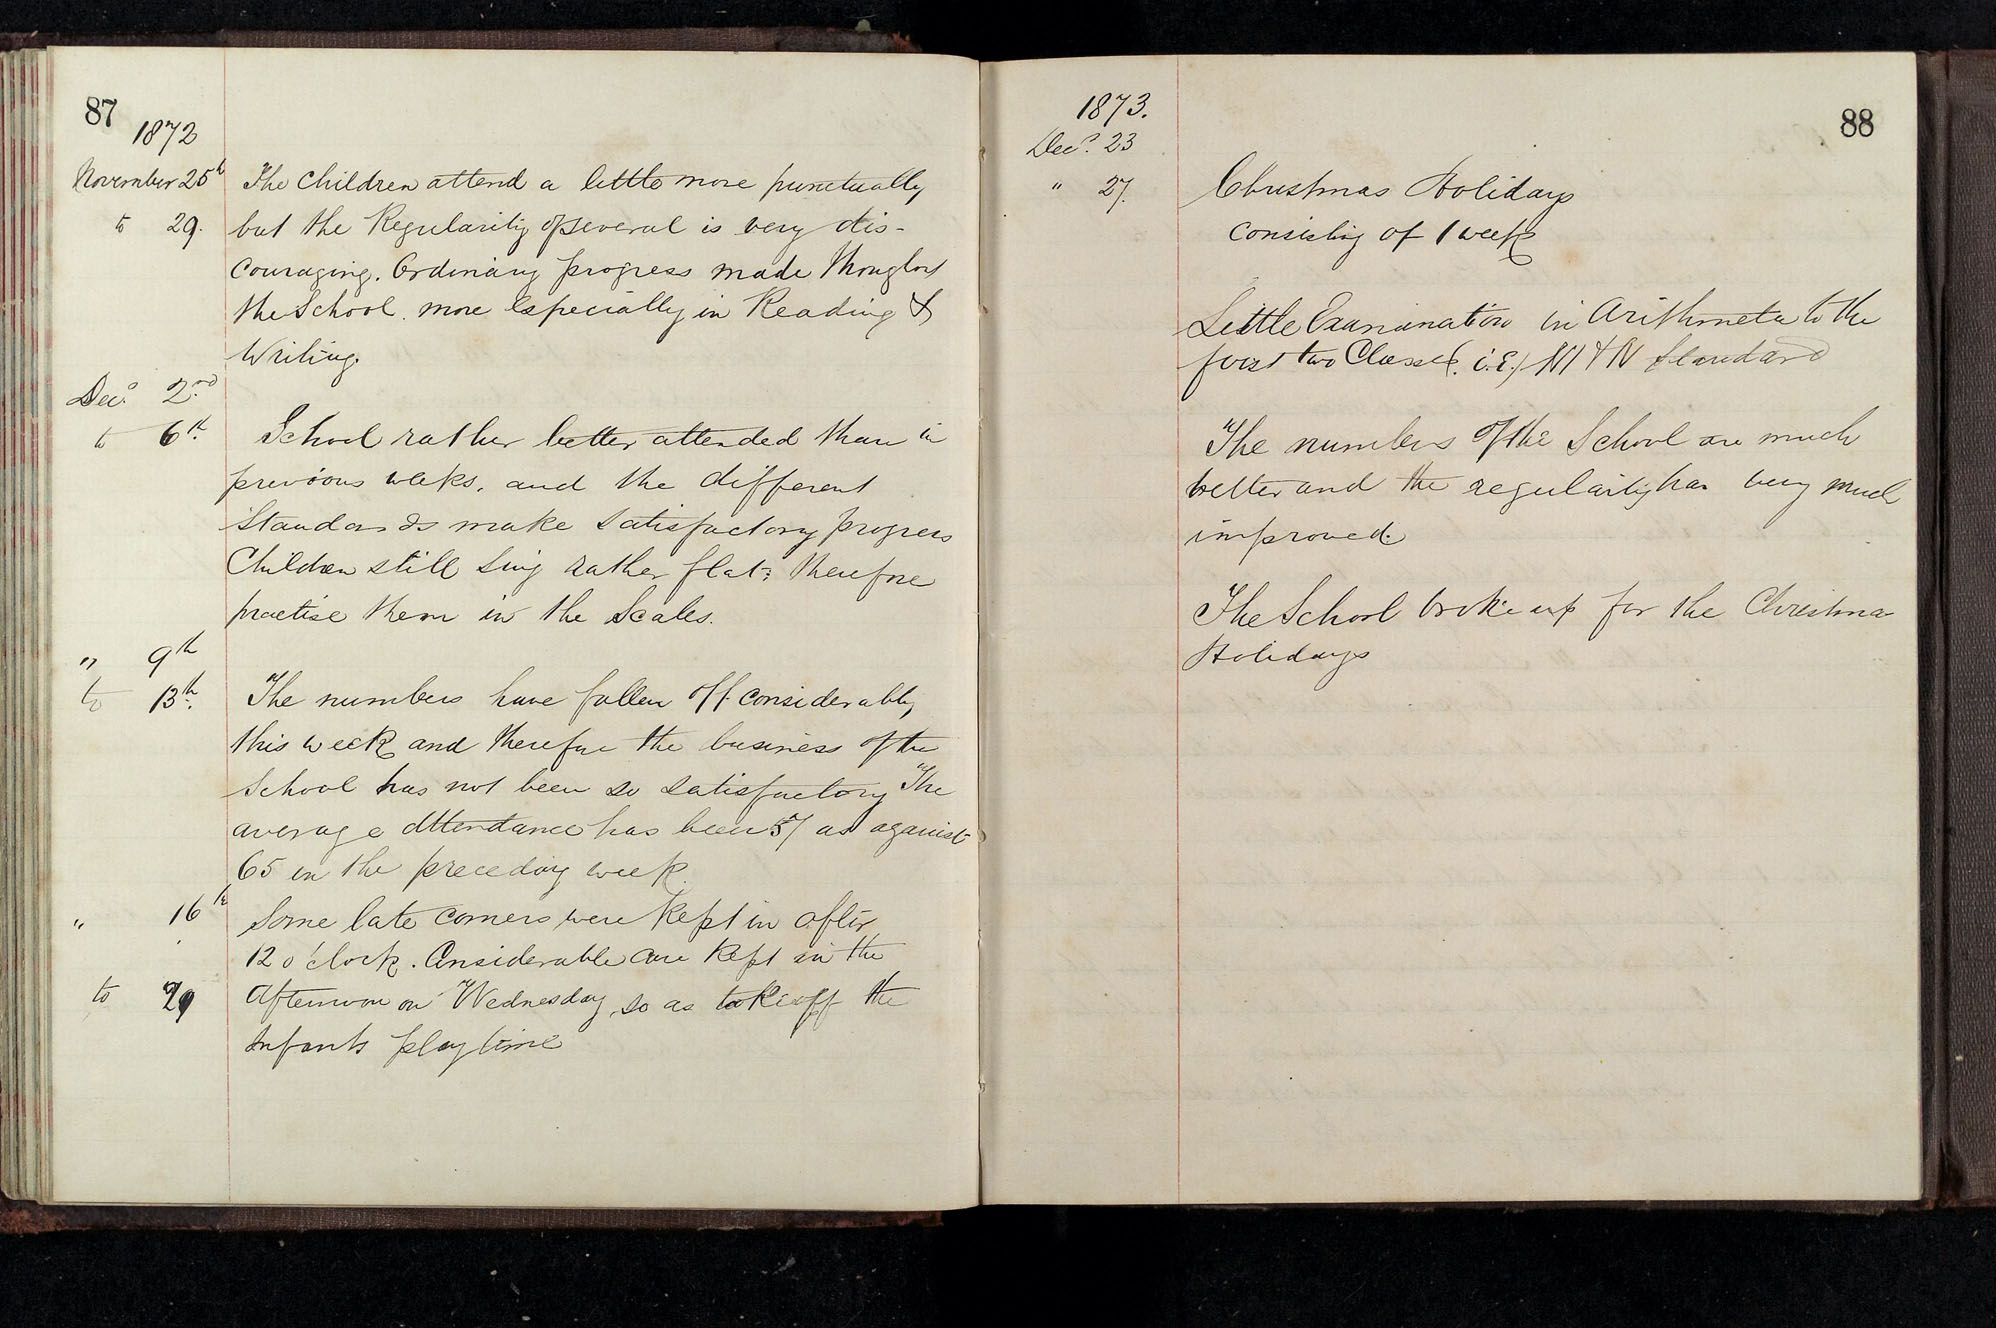 87
1872
November 25th The Children attend a little more punctually
to 29. but the Regularity of several is very dis-
couraging. Ordinary progress made thoughout
the School. more Especially in Reading &
Writing.
Decr. 2nd
to 6th. School rather better attended than in
previous weeks. and the different
Standards make satisfactory progress
Children still sing rather flat; therefore
practise them in the Scales.
" 9th
to 13th. The numbers have fallen off considerably
this week and therefore the business of the
School has not been so satisfactory The
average attendance has been 57 as against
65 in the preceding week.
" 16th Some late comers were kept in after
12 o'clock. Considerable are kept in the
to 29 afternoon on Wednesday, so as to take off the
Infants playtime
1873.
88
Decr. 23
" 27. Christmas Holidays
consisting of 1 week
Little Examination in Arithmetic to the
first two Classes (i.E.) VI & IV Standard
The numbers of the School are much
better and the regularity has very much
improved.
The School broke up for the Christmas
Holidays